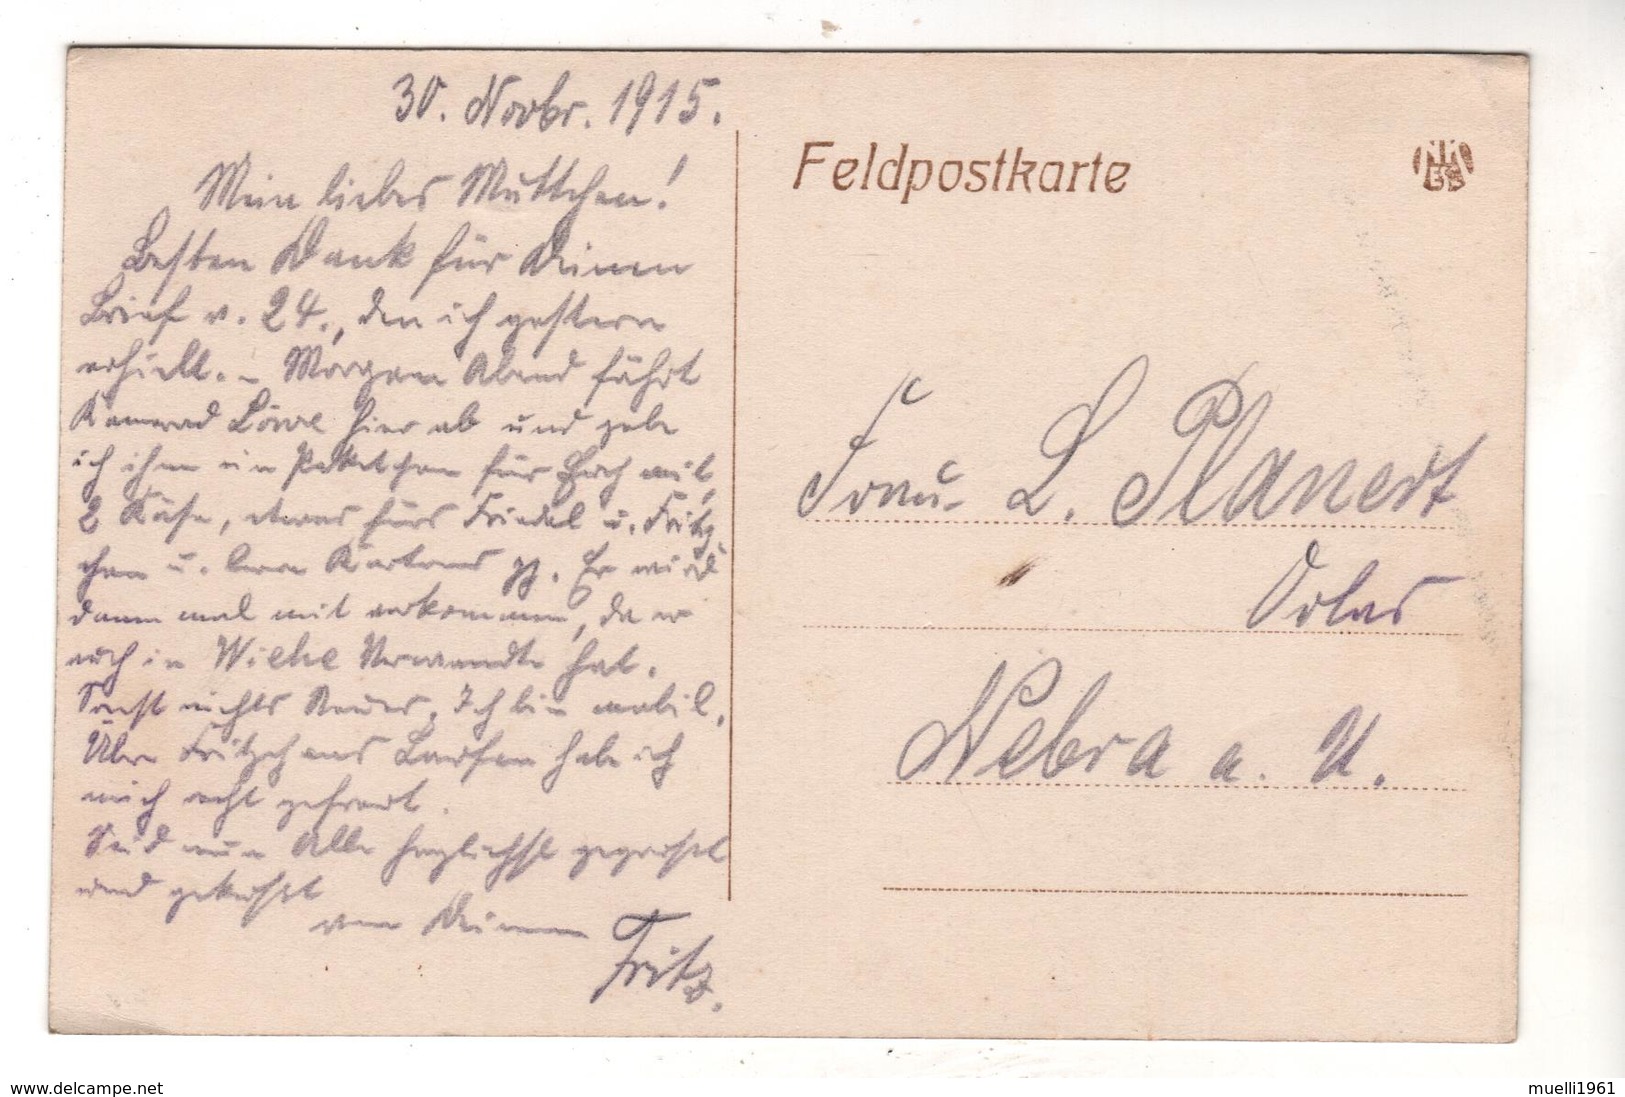 30. Novbr. 1915.
Mein liebes Muttchen!
Besten Dank für Deinen
Brief v. 24., den ich gestern
erhielt. – Morgen Abend fährt
Kamerad Löwe hier ab und gebe
ich ihm ein Paketchen für Euch mit,
2 Käse, etwas fürs Friedel u. Fritz
chen u. leere Kartons pp. Er wird
dann mal mit vorkommen, da er
auch in Wiehe Verwandte hat.
Sonst nichts Neues. Ich bin mobil.
Über Fritzchens Laufen habe ich
mich recht gefreut.
Seid nun Alle herzlichst gegrüßt
und geküßt
von Deinem
Fritz.
Feldpostkarte
Frau L. Planert
Nebra a. U.
www.delcampe.net
muelli1961